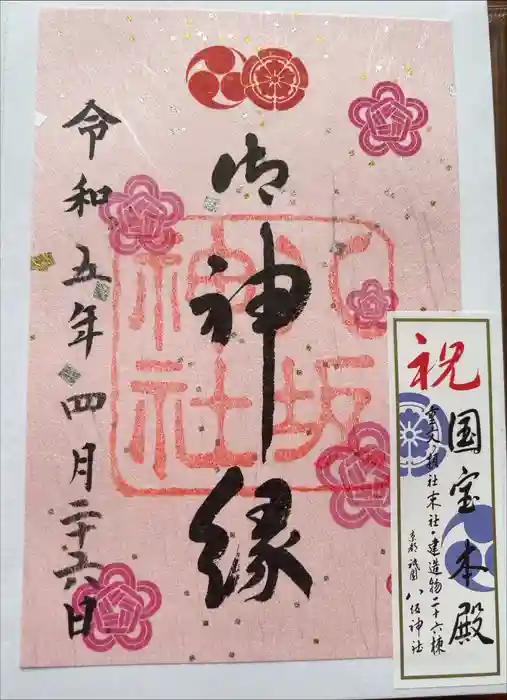 御神縁
八坂神社
令和五年四月二十六日
祝
国宝本殿
重文・摂社末社・建造物二十六棟
京都 祇園 八坂神社